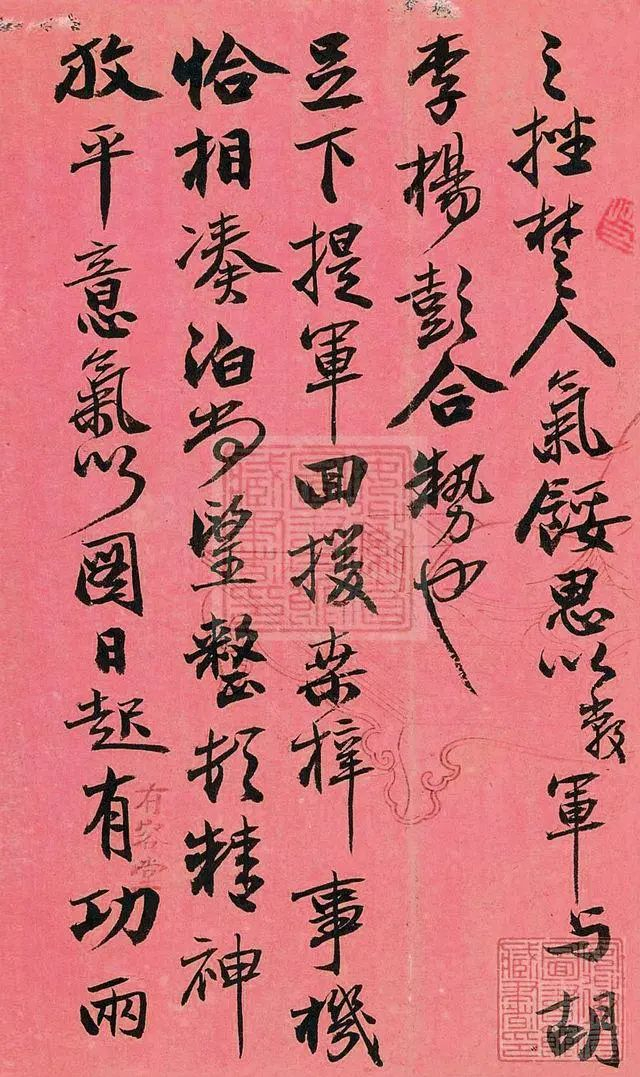 之挫楚人氣餒思以敝軍與胡
李楊彭合勢也
足下提軍回援桑梓事機
恰相湊泊尚望整頓精神
放平意氣以圖日起有功兩
有容堂